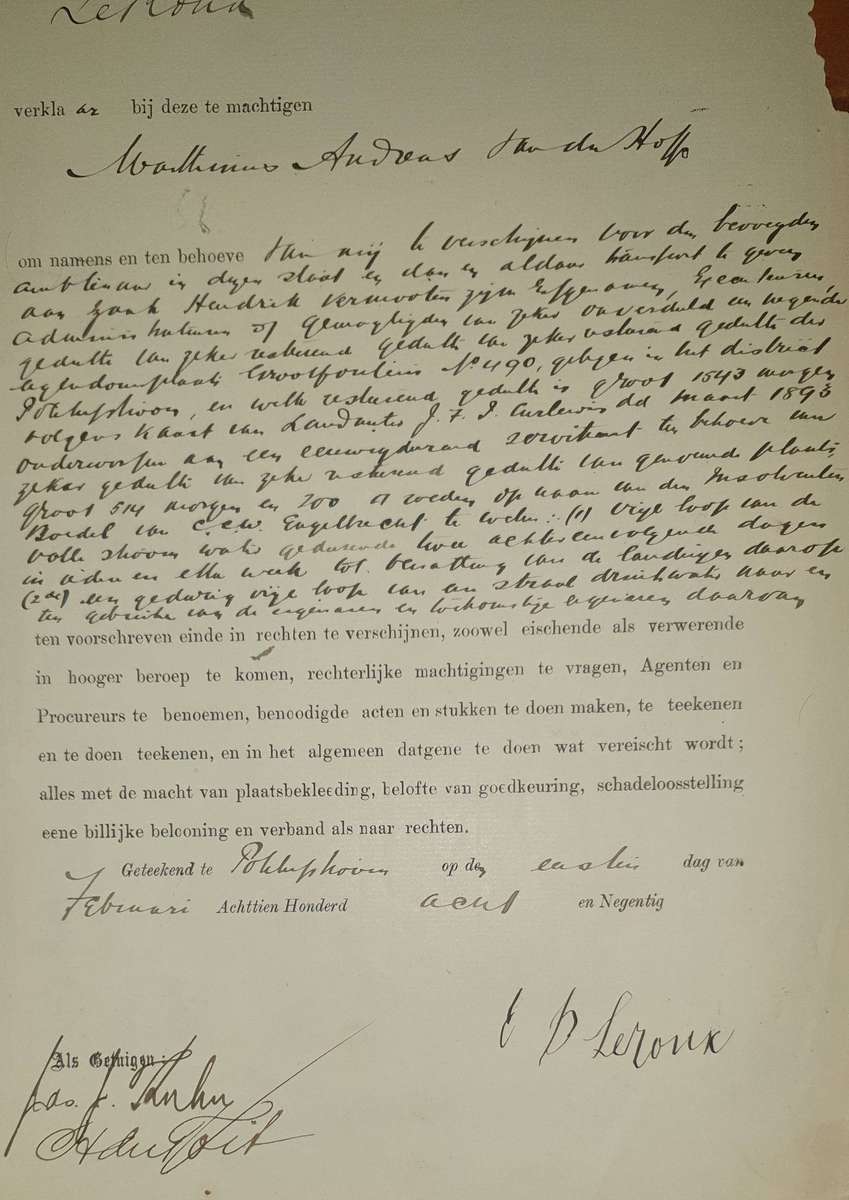 LeRoux
verkla ar bij deze te machtigen
Marthinus Andreas Van der Hoff
om namens en ten behoeve van mij te verschijnen voor den bevoegden
ambtenaar in dezen staat en dan en aldaar transport te geven
aan Izaak Hendrik Vermooten zijn Erfgenamen, Executeuren,
Administrateuren of Gemagtigden van zeker onverdeeld een negende
gedeelte van zeker resteerend gedeelte van zeker resteerend gedeelte der
eigendomsplaats Grootfontein No 490, gelegen in het district
Potchefstroom, en welk resteerend gedeelte is groot 1543 morgen
volgens Kaart van Landmeter J. F. J. Curlewis dd maart 1893
onderworpen aan een eeuwigdurend servituut ten behoeve van
zeker gedeelte van zeker resteerend gedeelte van genoemde plaats,
groot 514 morgen en 200 □ roeden op naam van den Insolventen
Boedel van C.C.W. Engelbrecht te weten: (1) vrije loop van de
volle stroom water gedurende twee achtereenvolgende dagen
in ieder en elke week tot bevatting van de landerijen daarop
(2de) een gedurig vrije loop van een straal drinkwater naar en
ten gebruike van de eigenaren en toekomstige eigenaren daarvan
ten voorschreven einde in rechten te verschijnen, zoowel eischende als verwerende
in hooger beroep te komen, rechterlijke machtigingen te vragen, Agenten en
Procureurs te benoemen, benoodigde acten en stukken te doen maken, te teekenen
en te doen teekenen, en in het algemeen datgene te doen wat vereischt wordt;
alles met de macht van plaatsbekleeding, belofte van goedkeuring, schadeloosstelling
eene billijke belooning en verband als naar rechten.
Geteekend te Potchefstroom op den eersten dag van
Februari Achttien Honderd acht en Negentig
E D LeRoux
Als Getuigen:
Jas. J.
H du Toit